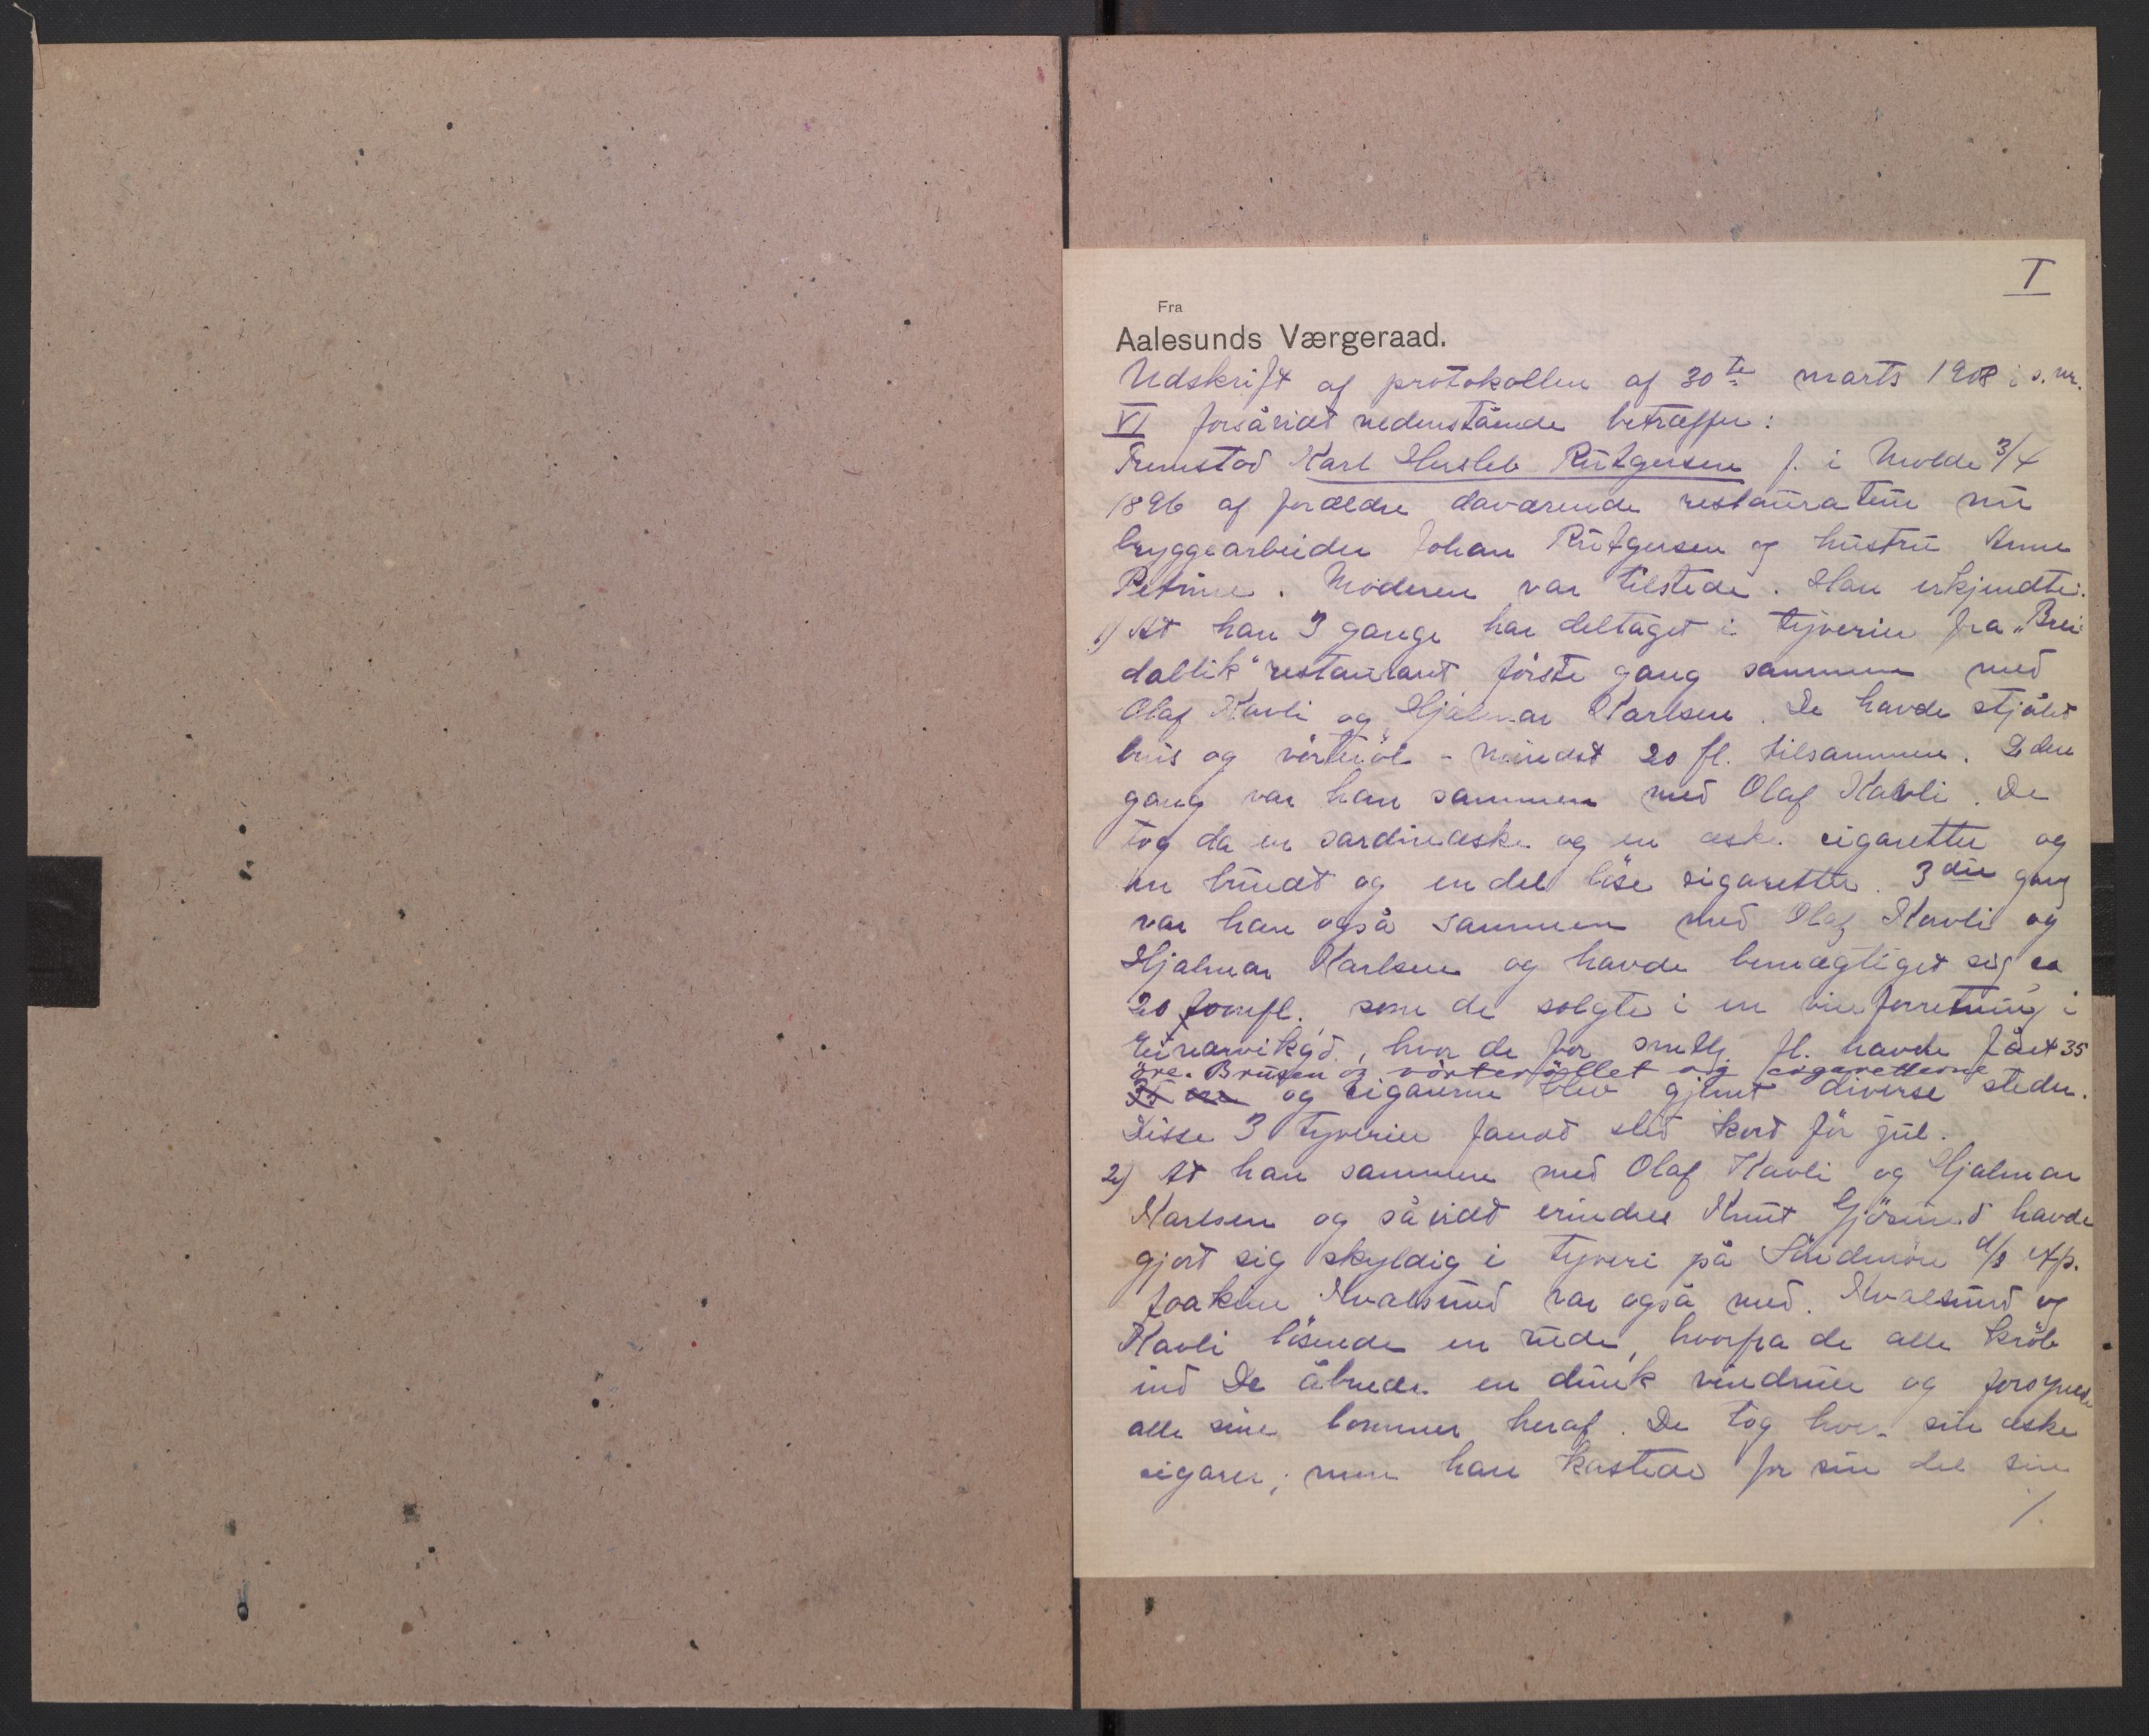 I
Fra
Aalesunds Værgeraad.
Udskrift af protokollen af 30te marts 1908 i s. nr.
VI forsåvidt nedenstående betræffer:
Fremstod Karl Husleb Rütgersen f. i Molde 3/4
1896 af forældre daværende restaurateur nu
bryggearbeider Johan Rütgersen og hustru Anne
Petrine. Moderen var tilstede. Han erkjendte:
1) At han 3 gange har deltaget i tyverier fra "Brei
dablik" restaurant første gang sammen med
Olaf Kavli og Hjalmar Karlsen. De havde stjålet
brus og vørterøl - mindst 20 fl. tilsammen. 2den
gang var han sammen med Olaf Kavli. De
tog da en sardineæske og en æske cigaretter og
en bundt og en del løse sigaretter. 3die gang
var han også sammen med Olaf Kavli og
Hjalmar Karlsen og havde bemægtiget sig ca
20 tomfl. som de solgte i en vinforretning i
Einarvikgd., hvor de for smtlg. fl. havde fået 35
öre. Brusen og vörteröllet og cigaretterne
35 öre og cigarerne blev gjemt diverse steder.
Disse 3 tyverier fandt sted kort før jul.
2) At han sammen med Olaf Kavli og Hjalmar
Karlsen og såvidt erindres Knut Gjøsund havde
gjort sig skyldig i tyveri på Søndmøre d/s exp.
Joakim Kvalsund var også med. Kvalsund og
Kavli løsnede en rude, hvorfra de alle krøb
ind De åbnede en dunk vindruer og forsynede
alle sine lommer heraf. De tog hver sin æske
cigarer; men han kastede for sin del sin
/.